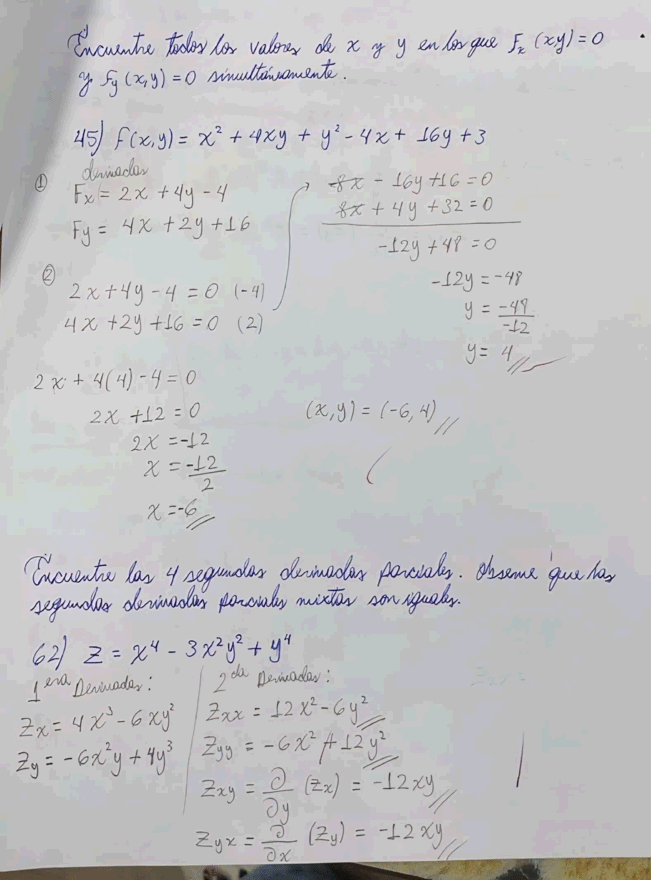 Encuentre todos los valores de x y y en los que Fx (x,y) = 0
y fy (x,y) = 0 simultáneamente.
45) f(x,y) = x² + 4xy + y² - 4x + 16y + 3
① derivadas
Fx = 2x + 4y - 4
Fy = 4x + 2y + 16
②
2x + 4y - 4 = 0 (-4)
4x + 2y + 16 = 0 (2)
-8x - 16y + 16 = 0
8x + 4y + 32 = 0
-12y + 48 = 0
-12y = -48
y = -48/-12
y = 4
2x + 4(4) - 4 = 0
2x + 12 = 0
2x = -12
x = -12/2
x = -6
(x,y) = (-6,4)
Encuentre las 4 segundas derivadas parciales. Observe que las
segundas derivadas parciales mixtas son iguales.
62) z = x⁴ - 3x²y² + y⁴
1era Derivadas:
Zx = 4x³ - 6xy²
Zy = -6x²y + 4y³
2da Derivadas:
Zxx = 12x² - 6y²
Zyy = -6x² + 12y²
Zxy = ∂/∂y (Zx) = -12xy
Zyx = ∂/∂x (Zy) = -12xy